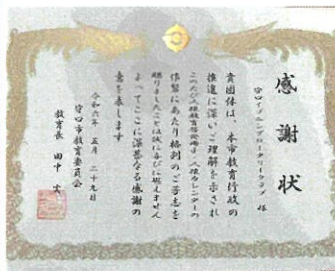 感謝状
守口イブニングロータリークラブ 様
貴団体は、本市教育行政の
推進に深いご理解を示され
このたび人権教育啓発冊子、人権カレンダーの
作製にあたり格別のご芳志を
賜りましたことは誠に喜びに堪えません
よってここに深甚なる感謝の
意を表します
令和六年 五月 二十九日
守口市教育委員会
教育長 田中 実